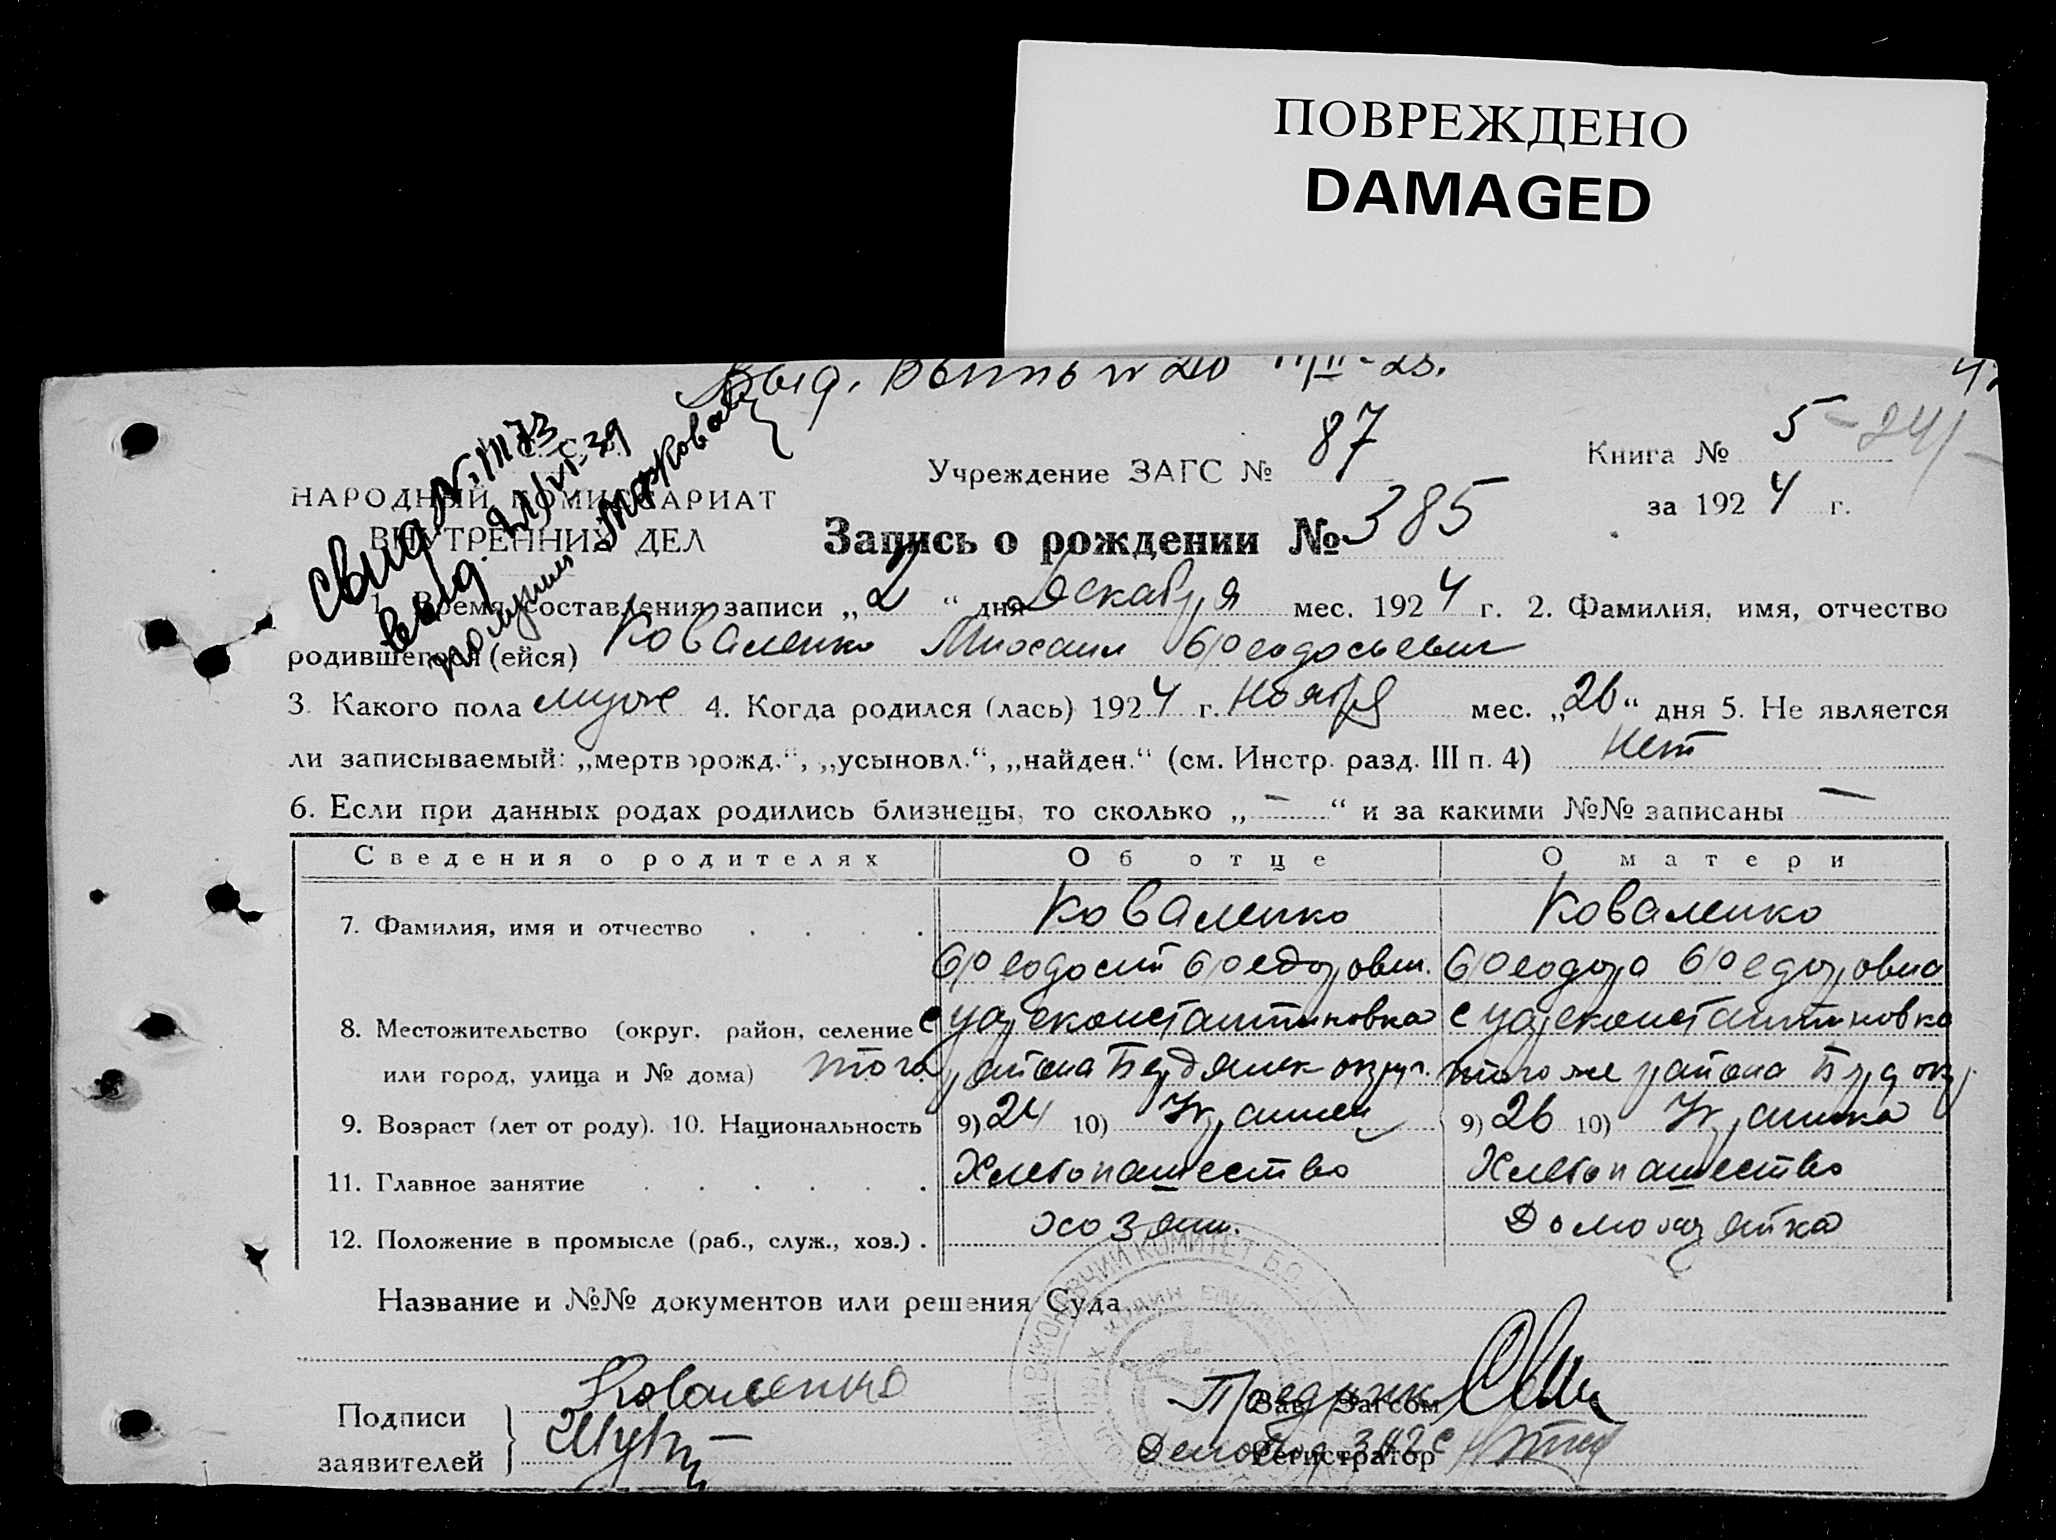 ПОВРЕЖДЕНО
DAMAGED
Учреждение ЗАГС № 87
Книга № 5
за 1924 г.
НАРОДНЫЙ КОМИССАРИАТ
ВНУТРЕННИХ ДЕЛ
Запись о рождении № 385
1. Время составления записи „2“ дня Декабря мес. 1924 г. 2. Фамилия, имя, отчество
родившегося (ейся) Коваленко Михаил Феодосьевич
3. Какого пола муж 4. Когда родился (лась) 1924 г. Ноября мес. „26“ дня 5. Не является
ли записываемый: „мертворожд.“, „усыновл.“, „найден.“ (см. Инстр. разд. III п. 4) нет
6. Если при данных родах родились близнецы, то сколько „—“ и за какими №№ записаны —
Сведения о родителях Об отце О матери
7. Фамилия, имя и отчество Коваленко Коваленко
Феодосий Федоров. Феодора Федоровна
8. Местожительство (округ, район, селение с Цареконстантиновка с Цареконстантиновка
или город, улица и № дома) того района Бердянск округ. того же района Берд окр
9. Возраст (лет от роду). 10. Национальность 9) 24 10) Украинец 9) 26 10) Украинка
11. Главное занятие Хлебопашество Хлебопашество
12. Положение в промысле (раб., служ., хоз.) хозяин. Домохозяйка
Название и №№ документов или решения Суда
Подписи
заявителей
Коваленко
Зав. Загсом
Регистратор